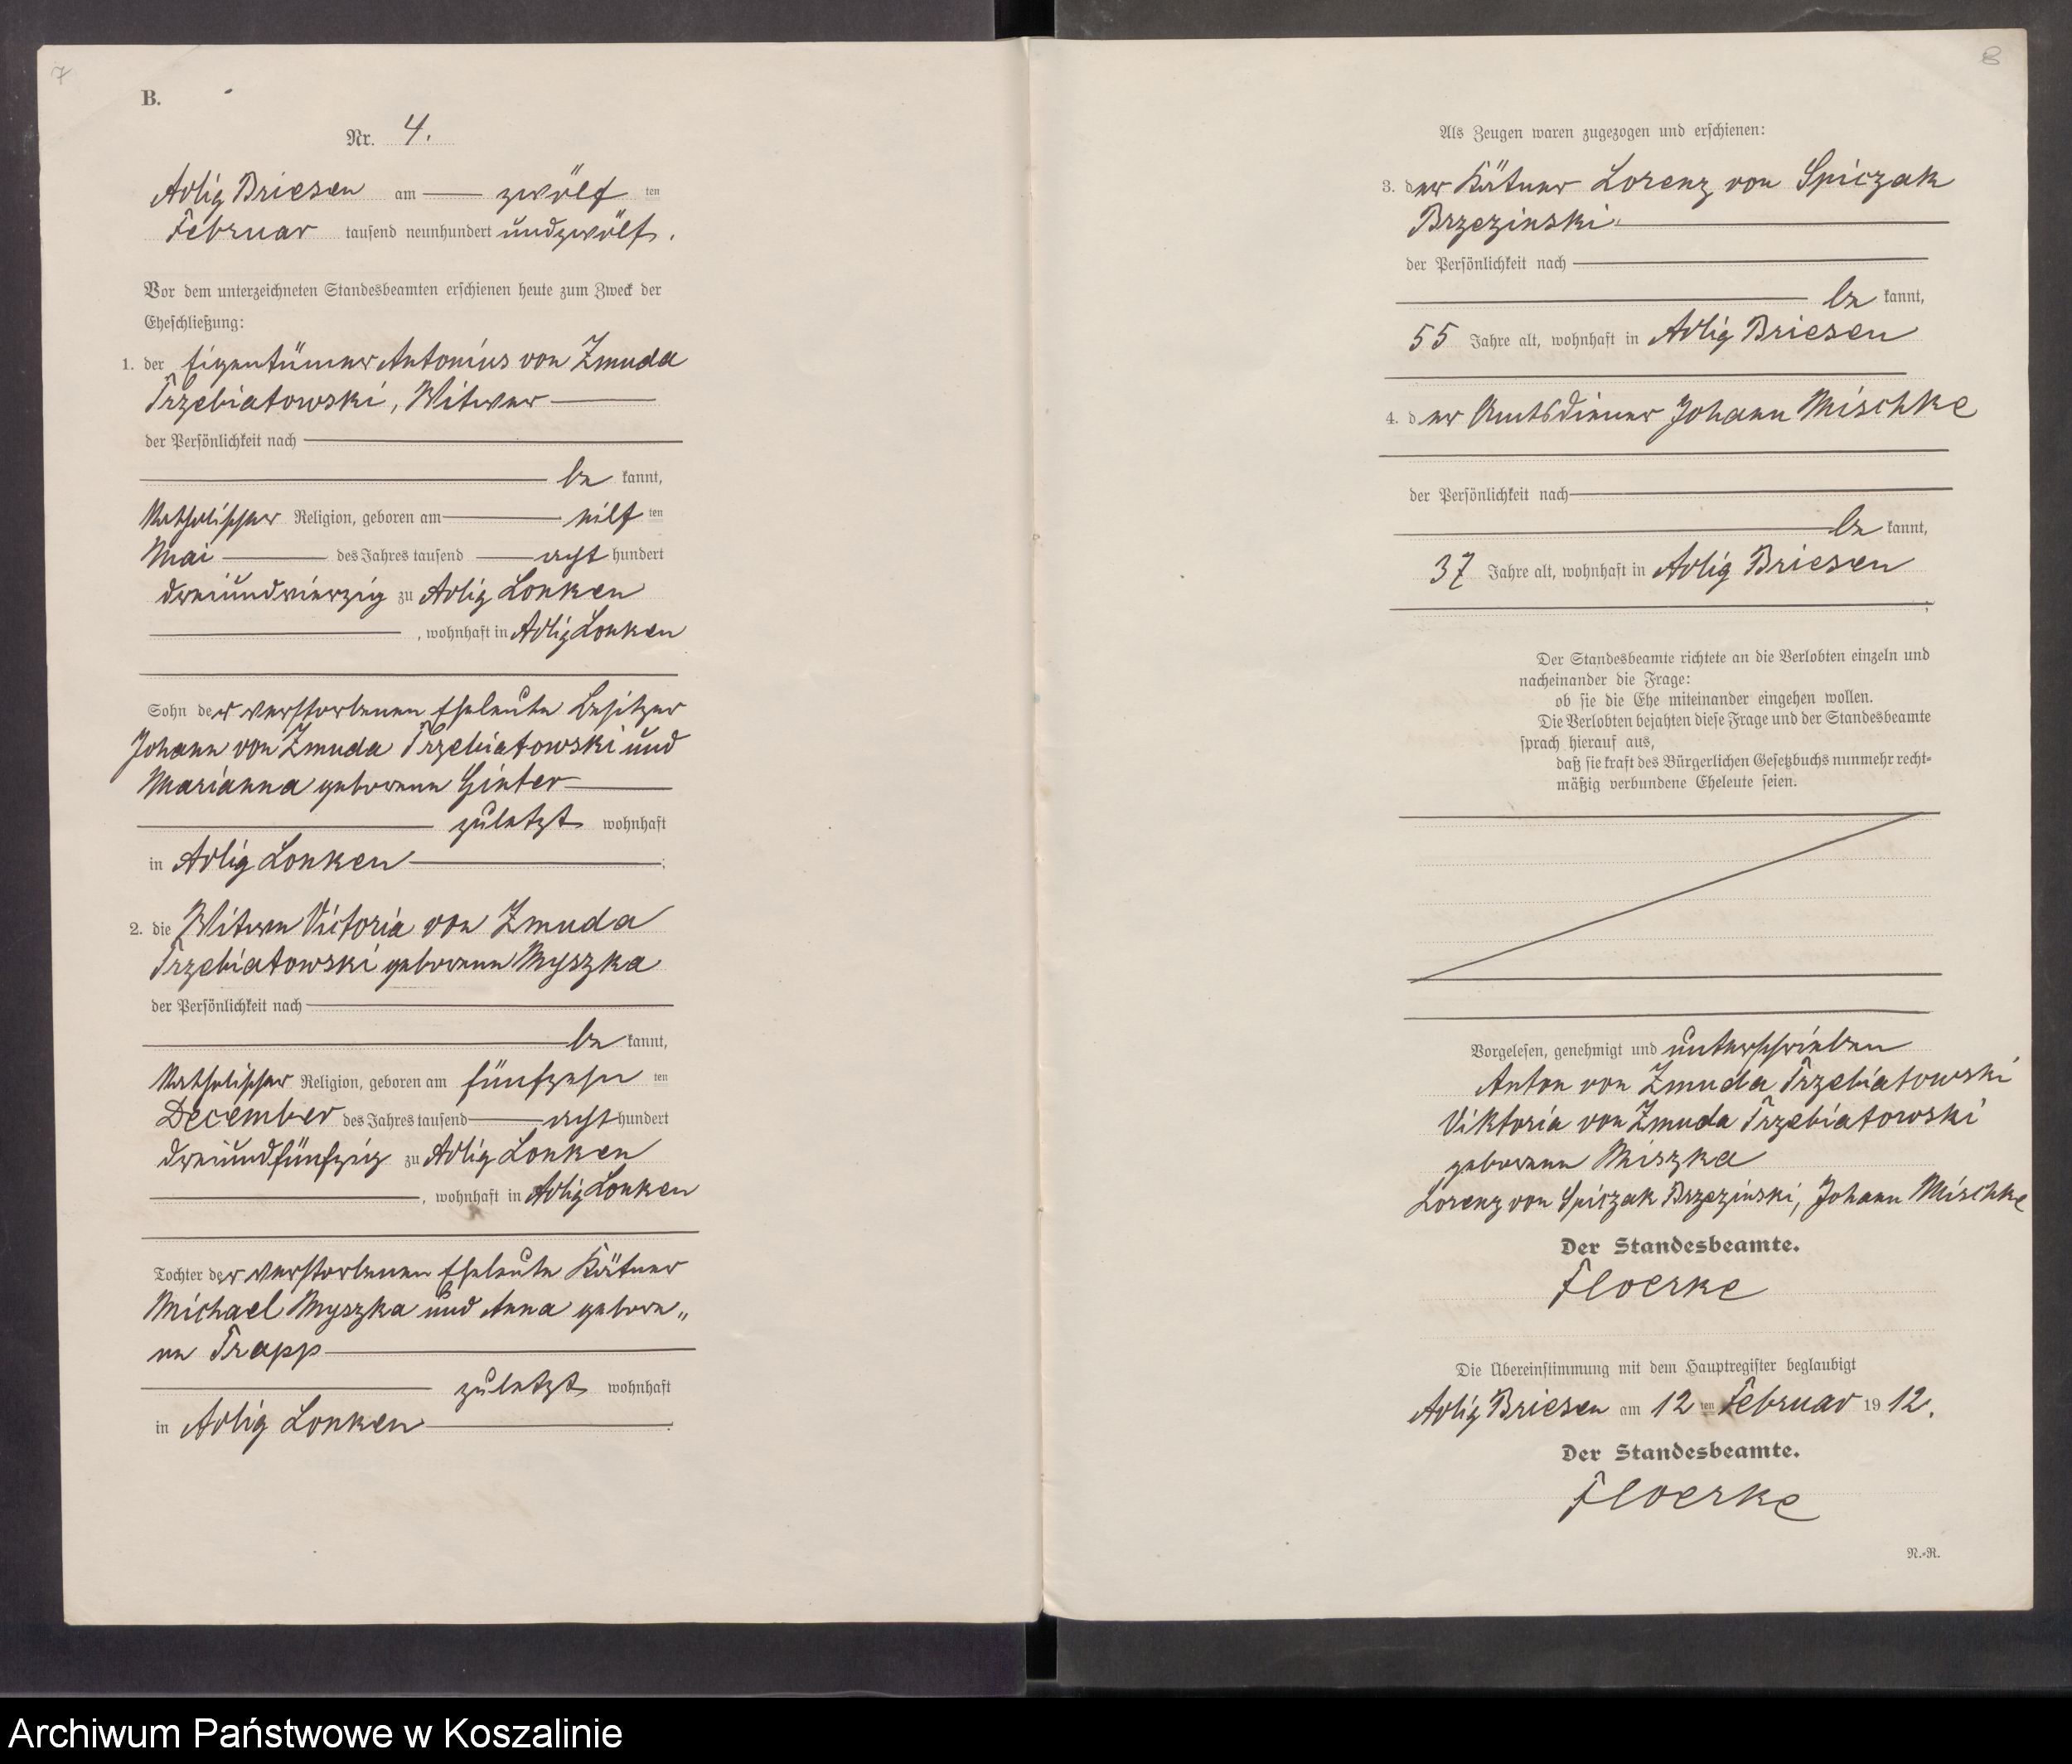 7
B.
Nr. 4.
Adlig Briesen am zwölf ten
Februar tausend neunhundert undzwölf.
Vor dem unterzeichneten Standesbeamten erschienen heute zum Zweck der
Eheschließung:
1. der Eigentümer Antonius von Zmuda
Trzebiatowski, Witwer
der Persönlichkeit nach
be kannt,
katholischer Religion, geboren am eilf ten
Mai des Jahres tausend acht hundert
dreiundvierzig zu Adlig Lonken
, wohnhaft in Adlig Lonken
Sohn der verstorbenen Eheleute Besitzer
Johann von Zmuda Trzebiatowski und
Marianna geborene Ginter
zuletzt wohnhaft
in Adlig Lonken ;
2. die Witwe Victoria von Zmuda
Trzebiatowski geborene Myszka
der Persönlichkeit nach
be kannt,
katholischer Religion, geboren am fünfzehn ten
December des Jahres tausend acht hundert
dreiundfünfzig zu Adlig Lonken
, wohnhaft in Adlig Lonken
Tochter der verstorbenen Eheleute Kätner
Michael Myszka und Anna gebore„
ne Trapp
zuletzt wohnhaft
in Adlig Lonken .
8
Als Zeugen waren zugezogen und erschienen:
3. der Kätner Lorenz von Spiczak
Brzezinski
der Persönlichkeit nach
be kannt,
55 Jahre alt, wohnhaft in Adlig Briesen
4. der Amtsdiener Johann Mischke
der Persönlichkeit nach
be kannt,
37 Jahre alt, wohnhaft in Adlig Briesen
;
Der Standesbeamte richtete an die Verlobten einzeln und
nacheinander die Frage:
ob sie die Ehe miteinander eingehen wollen.
Die Verlobten bejahten diese Frage und der Standesbeamte
sprach hierauf aus,
daß sie kraft des Bürgerlichen Gesetzbuchs nunmehr recht-
mäßig verbundene Eheleute seien.
Vorgelesen, genehmigt und unterschrieben
Anton von Zmuda Trzebiatowski
Viktoria von Zmuda Trzebiatowski
geborene Miszka
Lorenz von Spiczak Brzezinski, Johann Mischke
Der Standesbeamte.
Floerke
Die Übereinstimmung mit dem Hauptregister beglaubigt
Adlig Briesen am 12 ten Februar 19 12.
Der Standesbeamte.
Floerke
N.-R.
Archiwum Państwowe w Koszalinie